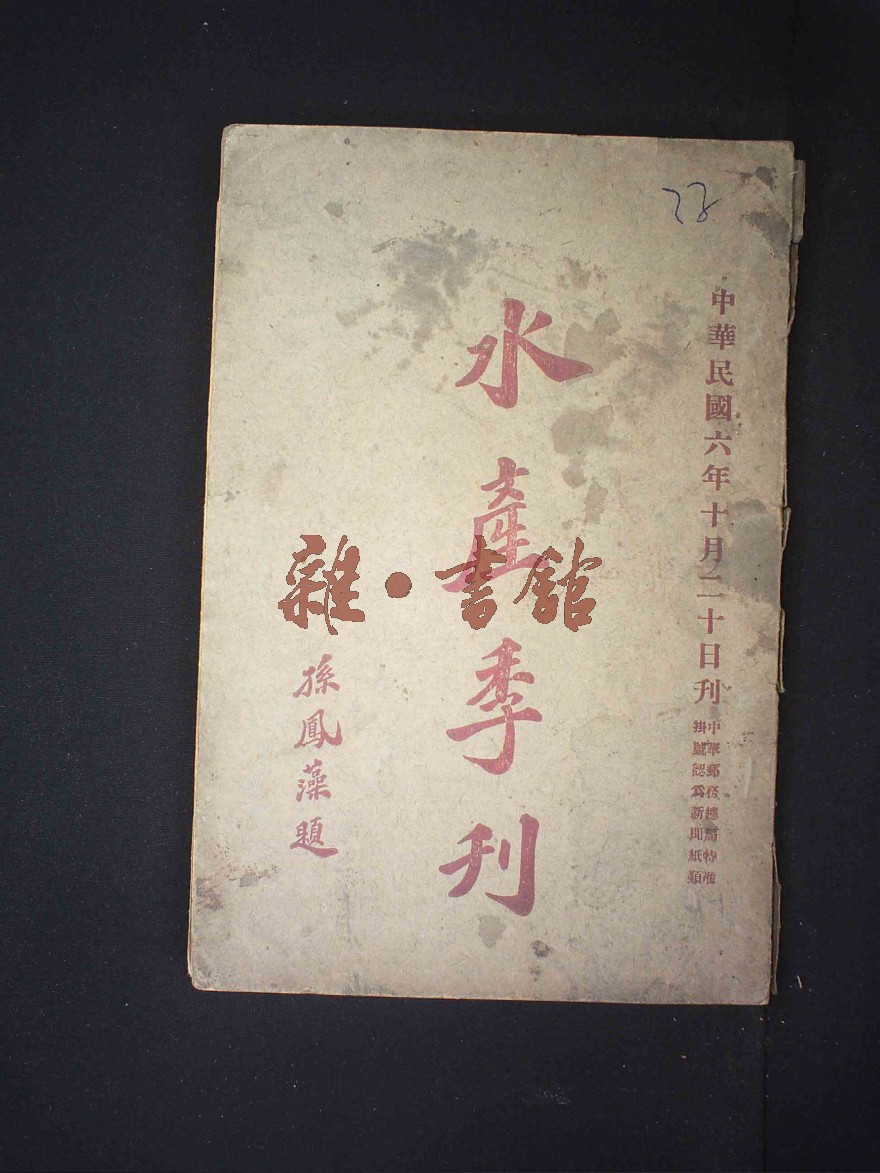 中華民國六年十月二十日刊
中華郵務總局特准
掛號認爲新聞紙類
水產季刊
孫鳳藻題
雜·書館